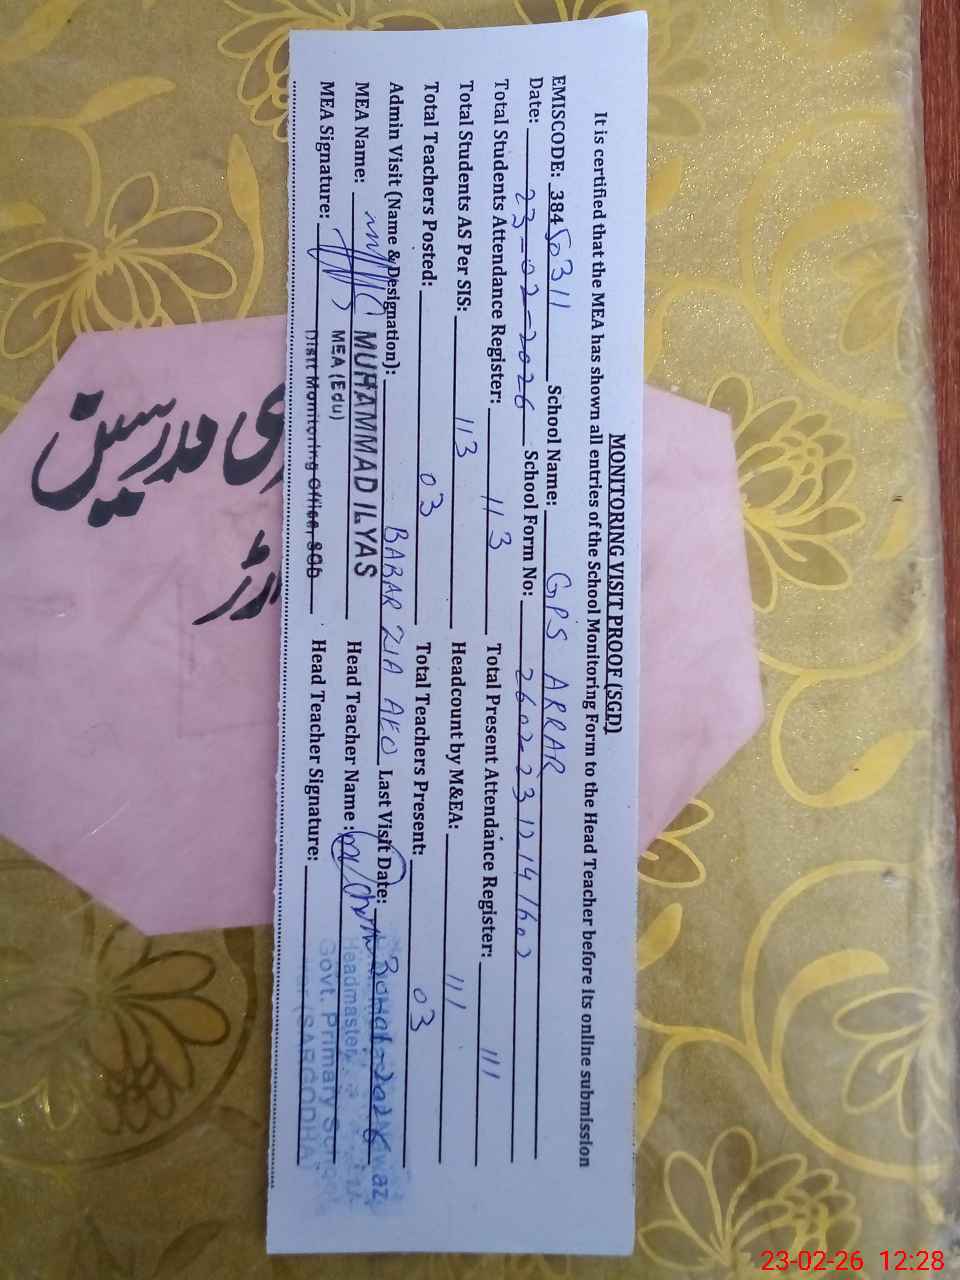 MONITORING VISIT PROOF (SGD)
It is certified that the MEA has shown all entries of the School Monitoring Form to the Head Teacher before its online submission
EMISCODE: 38450311 School Name: GPS ARRAR
Date: 23-02-2026 School Form No:
Total Students Attendance Register: 113 Total Present Attendance Register: 111
Total Students AS Per SIS: 113 Headcount by M&EA: 111
Total Teachers Posted: 03 Total Teachers Present: 03
Admin Visit (Name & Designation): BABAR ZIA AEO Last Visit Date: 2026
MEA Name: MUHAMMAD ILYAS Head Teacher Name:
MEA (Edu)
MEA Signature: Distt Monitoring Office, SGD Head Teacher Signature:
Headmaster
Govt. Primary School
(SARGODHA)
مدرسین
23-02-26 12:28